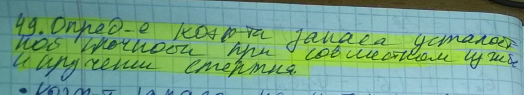 49. Опред-е коэф-та запаса усталост-
ной прочности при совместном изгибе
и кручении стержня.